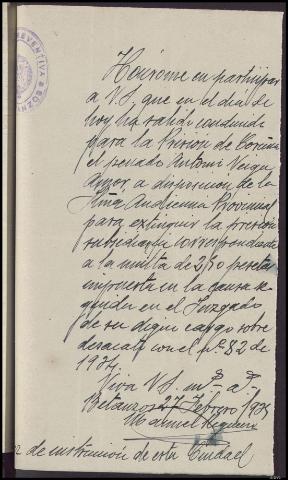 PREVENTIVA
Honrome en participar
a V.S. que en el dia de
hoy ha salido conducido
para la Prision de Coruña
el penado Antonio Veiga
a disposicion de la
Iltma Audiencia Provincial
para extinguir la prision
subsidiaria correspondiente
a la multa de 250 pesetas
impuesta en la causa se-
guida en el Juzgado
de su digno cargo sobre
desacato con el nº 82 de
1934.
Viva V.S. ms. as.
Betanzos 27 Febrero 1935
Manuel
de instruccion de esta Ciudad